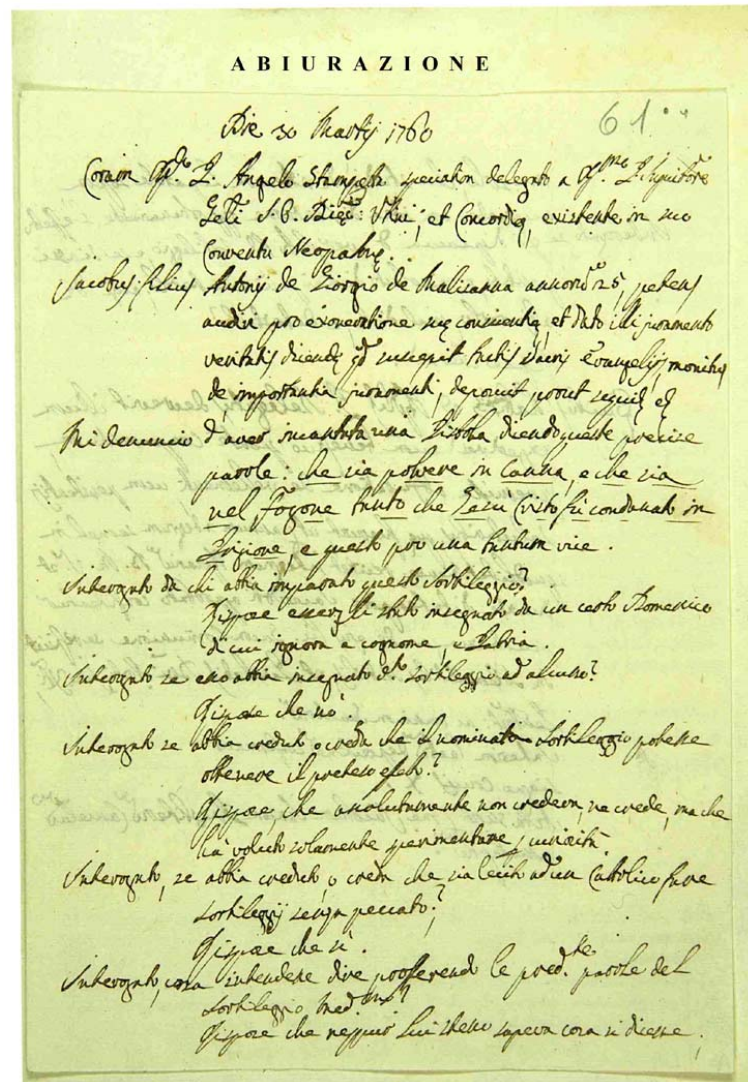 ABIURAZIONE
61
Die 30 Martij 1760
Coram P. Angelo delegato a
S. O. et Concordię, existente in suo
Conventu
Jacobus filius Antonij de Giorgio de annorũ 25, petens
audiri pro exoneratione suę conscientię, et dato illi juramento
veritatis dicendę qd suscepit tactis sacris Evangelijs, monitus
de importantia juramenti, deposuit prout
Mi denuncio d'aver incantata una Pistola dicendo queste precise
parole: che sia polvere in Canna, e che sia
nel Fogone tanto che Gesù Cristo fù condanato in
Prigione, e questo per una vice.
Interogato da chi abbia imparato questo sortileggio?
Rispose essergli stato insegnato da un certo Domenico
di cui ignora e cognome, e Patria.
Interogato se esso abbia insegnato d.to sortileggio ad alcuno?
Rispose che nò.
Interogato se abbia creduto o creda che il nominato sortileggio potesse
ottenere il preteso efeto?
Rispose, che assolutamente non credeva, ne crede, ma che
hà voluto solamente sperimentare p curiosità.
Interogato, se abbia creduto, o creda che sia lecito ad un Cattolico fare
sortileggij senza peccato?
Rispose che sì.
Interogato, cosa intendesse dire profferendo le pred.te parole del
sortileggio med.mo?
Rispose che neppur lui stesso sapeva cosa si dicesse.